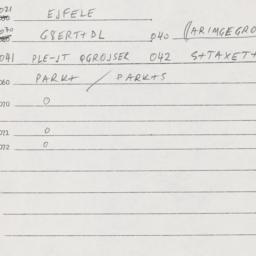 021 EJFELE
030 G8ERT+DL 040 PARIMGEGRO
041 PLE-JT QGROJSER 042 S+TAXET+
060 PARK+ / PARK+S
070 0
071 0
072 0